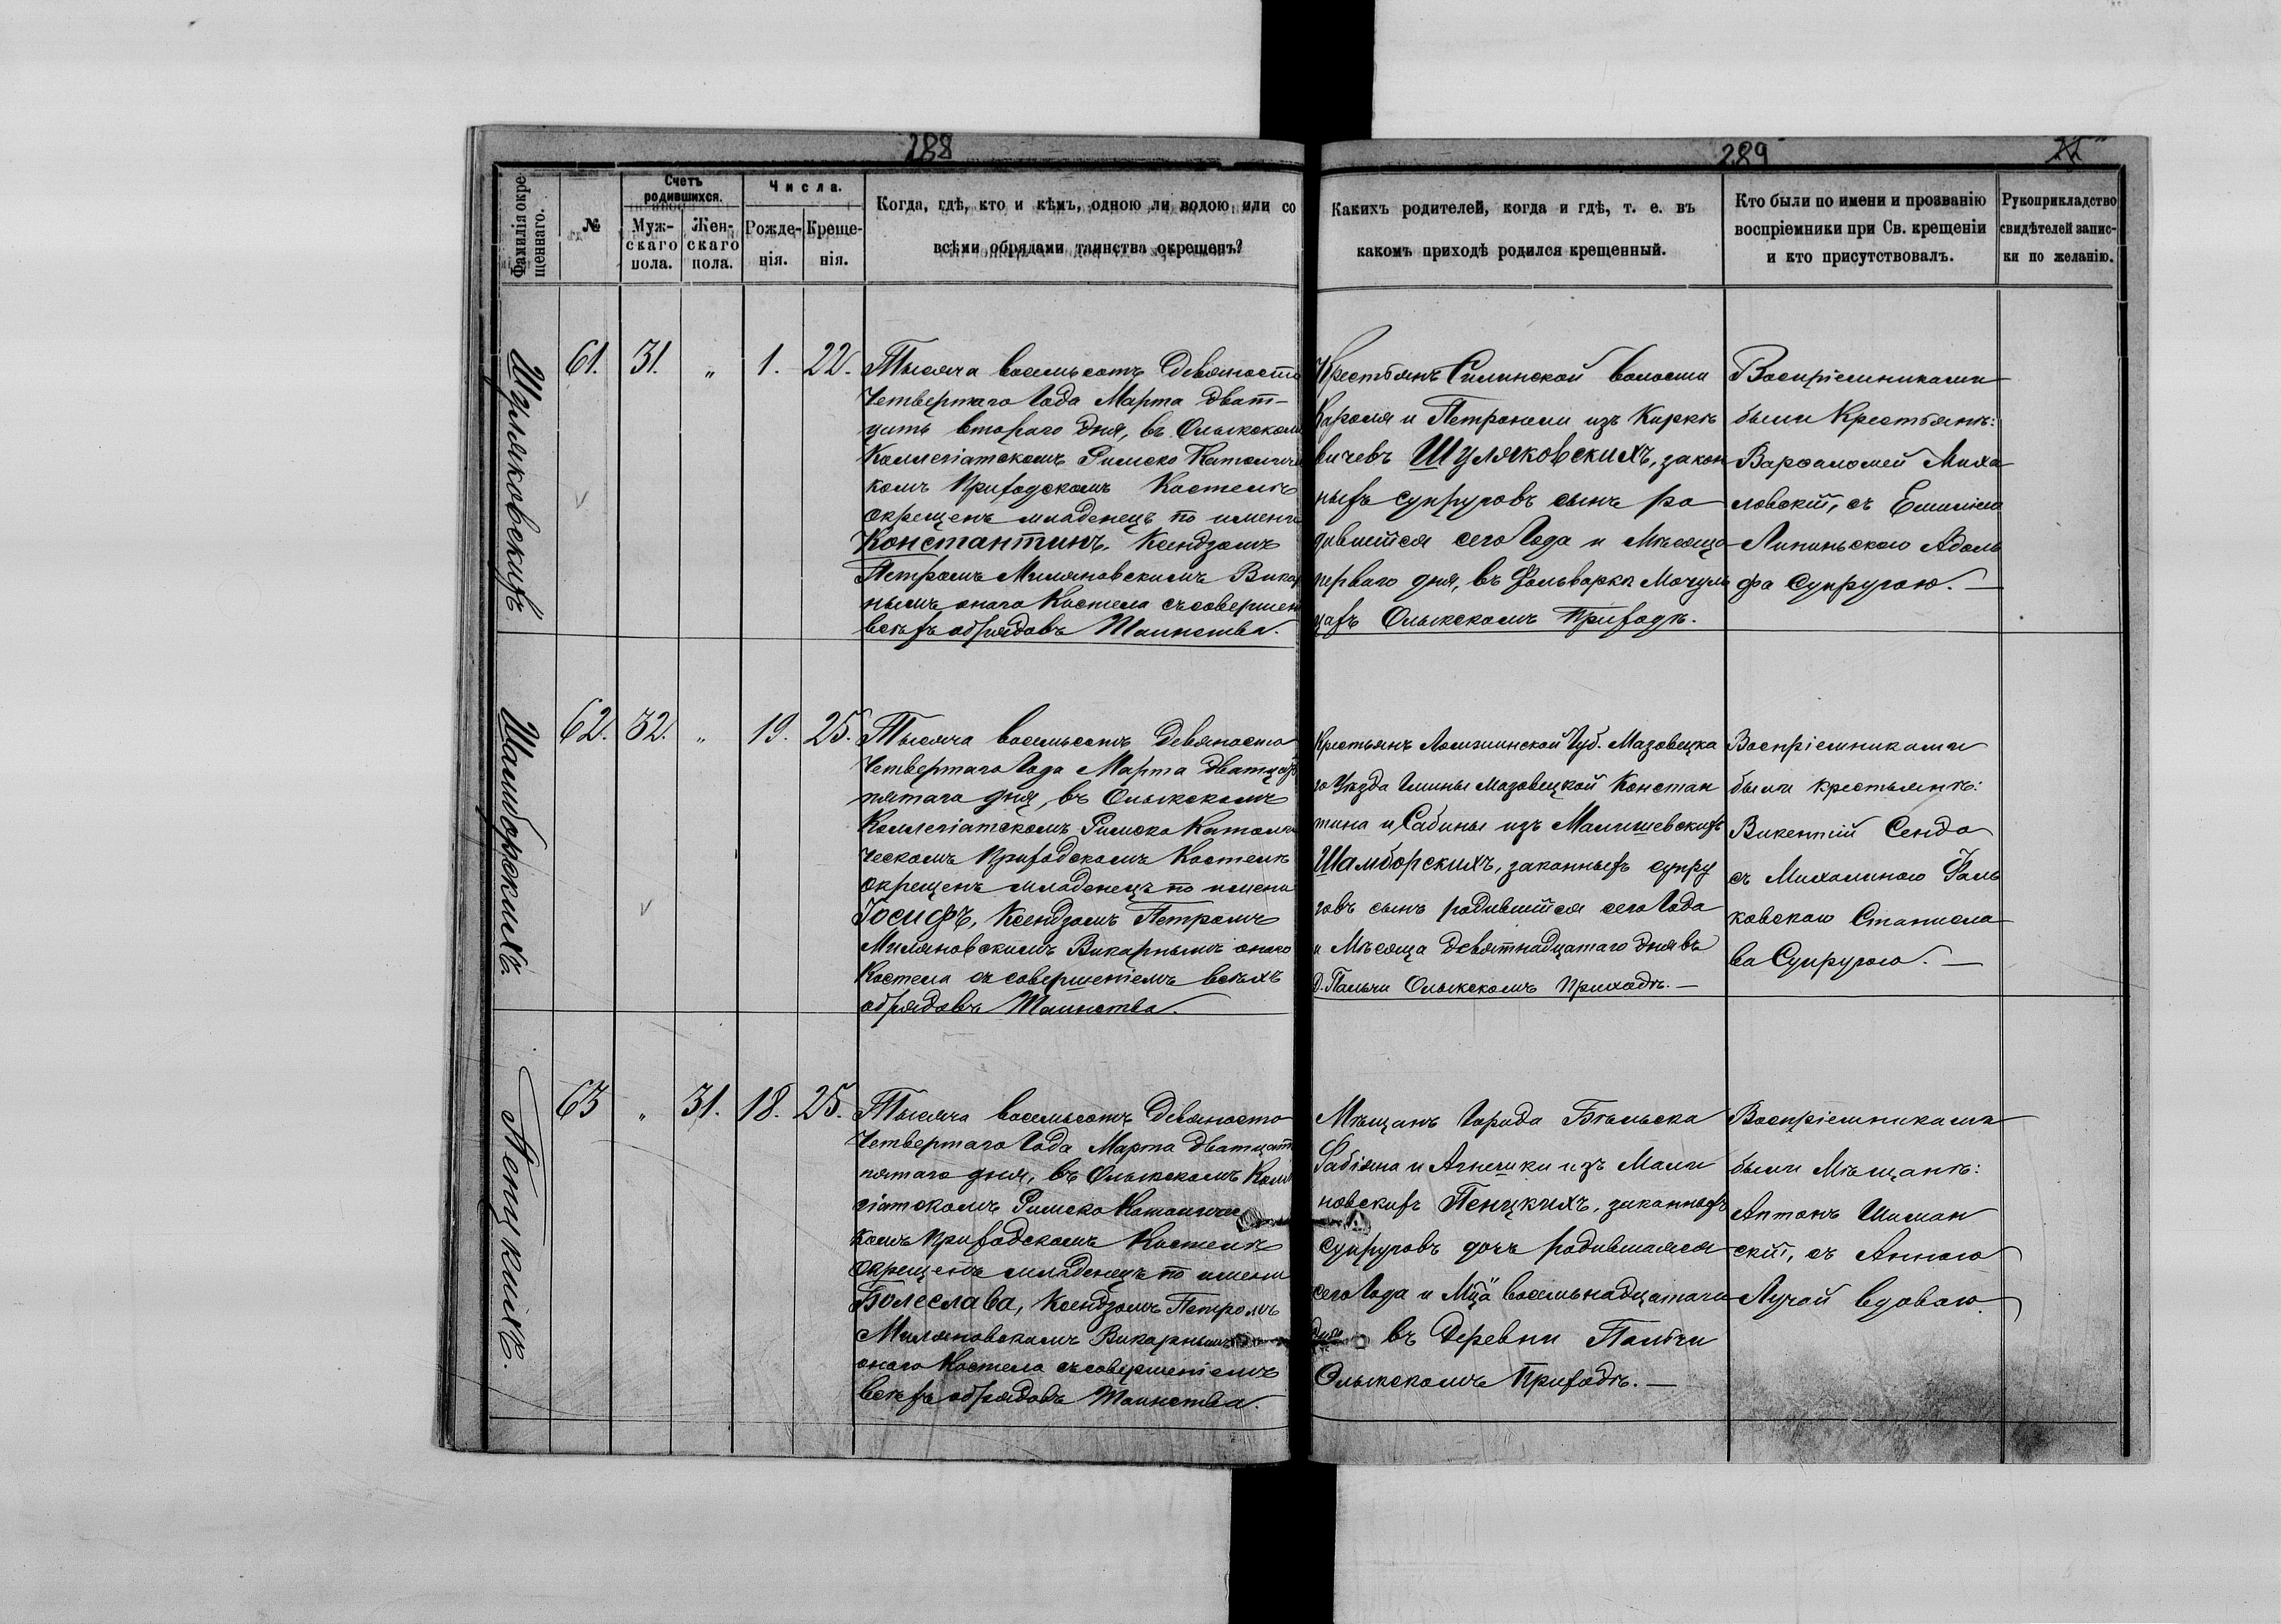 288
Фамилія окре-
щеннаго.
№
Счетъ
родившихся.
Муж-
скаго
пола.
Жен-
скаго
пола.
Числа.
Рожде-
нія.
Креще-
нія.
Когда, гдѣ, кто и кѣмъ, одною ли водою или со
всѣми обрядами таинства окрещенъ?
289
Какихъ родителей, когда и гдѣ, т. е. въ
какомъ приходѣ родился крещенный.
Кто были по имени и прозванію
воспріемники при Св. крещеніи
и кто присутствовалъ.
Рукоприкладство
свидѣтелей запис-
ки по желанію.
Шуляковскихъ
61. 31. „ 1. 22.
Тысяча восемьсотъ девяносто
Четвертаго Года Марта дват-
цать втораго дня, въ Олыкском
Коллегіатскомъ Римско Католиче
комъ Приходскомъ Костелѣ
окрещенъ младенецъ по имени
Константинъ, Ксендзомъ
Петромъ Миляновскимъ Викар
нымъ онаго Костела съ совершен
всѣхъ обрядовъ Таинства.
Крестьянъ Силинской волости
Кароля и Петронели изъ Кирке
вичевъ Шуляковскихъ, закон
ныхъ супруговъ сынъ ро
дившійся сего Года и Мѣсяца
перваго дня, въ Фольварка Мочуль
цахъ Олыкскомъ Приходѣ.
Воспріемниками
были Крестьянъ:
Варфаломей Миха
ловскій, съ Емилією
Липиньскою Адоль
фа Супругою. —
Шамборскихъ
62. 32. „ 19. 25.
Тысяча восемьсотъ девяносто
Четвертаго Года Марта дватцать
пятаго дня, въ Олыкскомъ
Коллегіатскомъ Римско Католи
ческомъ Приходскомъ Костелѣ
окрещенъ младенецъ по имени
Іосифъ, Ксендзомъ Петромъ
Миляновскимъ Викарнымъ онаго
Костела съ совершеніемъ всѣхъ
обрядовъ Таинства.
Крестьянъ Ломжинской Губ. Мазовецка
го Уѣзда Гмины Мазовецкой Констан
тина и Сабины изъ Малишевскихъ
Шамборскихъ, законныхъ супру
говъ сынъ родившійся сего Года
и Мѣсяца девятнадцатаго дня въ
д. Пальчи Олыкскомъ Приходѣ. —
Воспріемниками
были крестьянъ:
Викентій Сендо
съ Михалиною Фаль
ковскою Станисла
ва Супругою. —
Пенцкихъ.
63 „ 31. 18. 25.
Тысяча восемьсотъ Девяносто
Четвертаго Года Марта Дватцать
пятаго дня, въ Олыкскомъ Колл
гіатскомъ Римско Католичес
комъ Приходскомъ Костелѣ
окрещенъ младенецъ по имени
Болеслава, Ксендзомъ Петромъ
Миляновскимъ Викарнымъ
онаго Костела съ совершеніемъ
всѣхъ обрядовъ Таинства.
Мѣщанъ Города Бѣльска
Фабіяна и Агнешки изъ Мали
новскихъ Пенцкихъ, законныхъ
супруговъ дочь родившаяся
сего Года и Мца восемьнадцатаго
дня въ Деревни Пальчи
Олыкскомъ Приходѣ. —
Воспріемниками
были Мѣщанъ:
Антонъ Шиман
скій, съ Анною
Лучай вдовою.